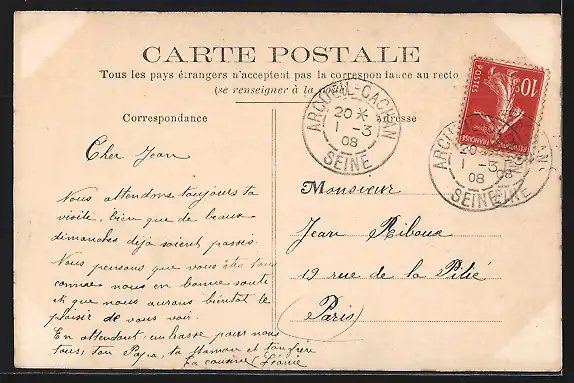 CARTE POSTALE
Tous les pays étrangers n'acceptent pas la correspondance au recto
(se renseigner à la poste)
Correspondance
Adresse
ARCUEIL-CACHAN
20*
1 -3
08
SEINE
POSTES
10c
20
1 -3
08
08
SEINE
Cher Jean
Nous attendons toujours ta
visite, bien que de beaux
dimanches déjà soient passés.
Nous pensons que vous êtes tous
comme nous en bonne santé
et que nous aurons bientôt le
plaisir de vous voir.
En attendant, embrasse pour nous
tous, ton Papa, ta Maman et ton frère
Ta cousine Léonie
Monsieur
Jean Riboux
19 rue de la Pitié
(Paris)